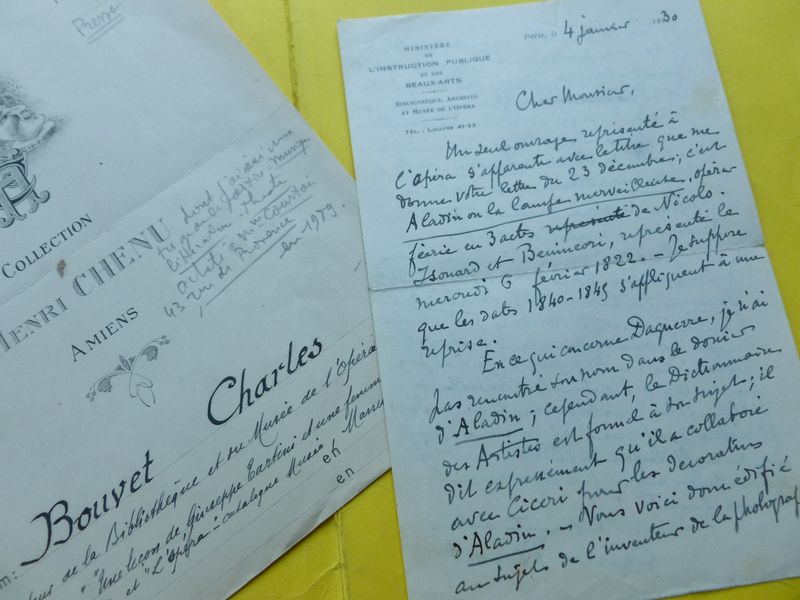 Presse
COLLECTION
HENRI CHENU
AMIENS
dont j'ai eu une
très grande partie musique
littérature, théâtre
achetée
43, rue de Provence
en 1979.
Bouvet Charles
de la Bibliothèque et du Musée de l'Opéra
"Une leçon de Giuseppe Tartini et une femme
et "L'Opéra" - catalogue Musée
en
en
MINISTÈRE
DE
L'INSTRUCTION PUBLIQUE
ET DES
BEAUX-ARTS
BIBLIOTHÈQUE, ARCHIVES
ET MUSÉE DE L'OPÉRA
TÉL. : LOUVRE 41-32
Paris, le 4 janvier 1930
Cher Monsieur,
Un seul ouvrage représenté à
l'opéra s'apparente avec le titre que me
donne votre lettre du 23 décembre ; c'est
Aladin ou la lampe merveilleuse, opéra
féerie en 3 actes représenté de Nicolo
Isouard et Benincori, représenté le
mercredi 6 février 1822. - Je suppose
que les dates 1840-1845 s'appliquent à une
reprise.
En ce qui concerne Daguerre, je n'ai
pas rencontré son nom dans le dossier
d'Aladin ; cependant, le Dictionnaire
des Artistes est formel à son sujet ; il
dit expressément qu'il a collaboré
avec Ciceri pour les décorations
d'Aladin. - Vous voici donc édifié
au sujet de l'inventeur de la photograp